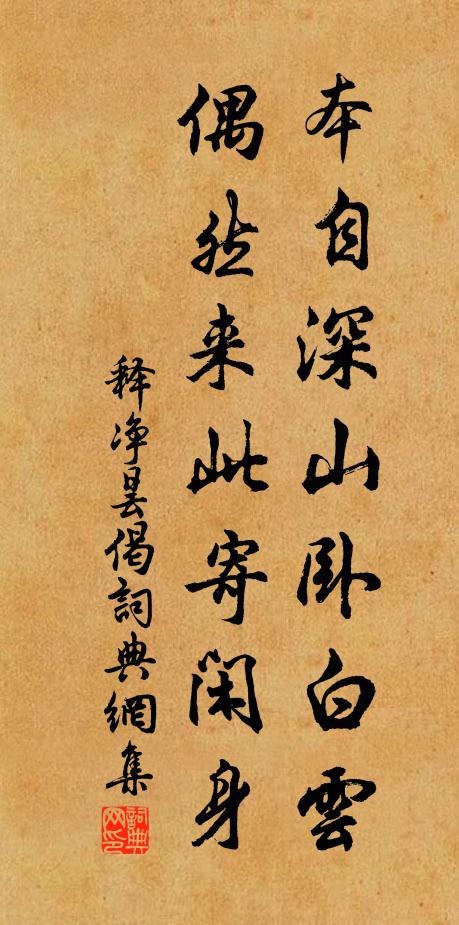 本自深山卧白雲
偶然来此寄閑身
释净昙偈詞典網集
詞典網印